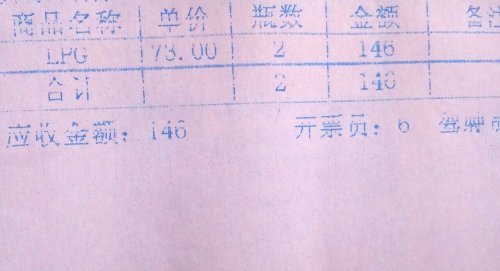 商品名称 单价 瓶数 金额 备注
LPG 73.00 2 146
合计 2 146
应收金额: 146 开票员: 6 驾驶员